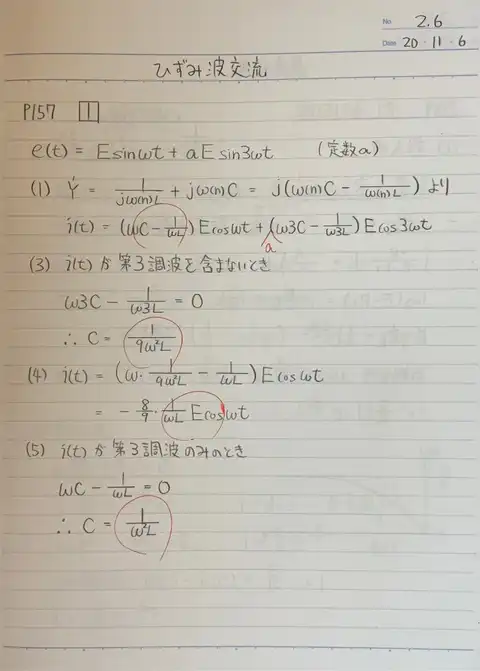 No. 2.6
Date 20・11・6
ひずみ波交流
P157 1
e(t) = E sinωt + aE sin3ωt (定数a)
(1) Ẏ = 1/(jω(n)L) + jω(n)C = j(ω(n)C - 1/(ω(n)L)) より
i(t) = (ωC - 1/(ωL)) E cosωt + (ω3C - 1/(ω3L)) E cos3ωt
a
(3) i(t) が第3調波を含まないとき
ω3C - 1/(ω3L) = 0
∴ C = 1/(9ω²L)
(4) i(t) = (ω・1/(9ω²L) - 1/(ωL)) E cosωt
= - 8/9・1/(ωL) E cosωt
(5) i(t) が第3調波のみのとき
ωC - 1/(ωL) = 0
∴ C = 1/(ω²L)